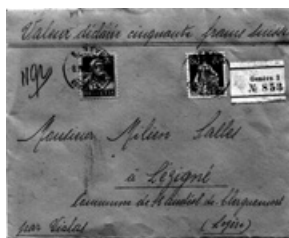 Valeur déclarée cinquante francs suisses
N92
Genève 2
№ 853
Monsieur Milien Salles
à Lézigné
Commune de St Andéol de Clerguemort
par Vialas (Lozère)